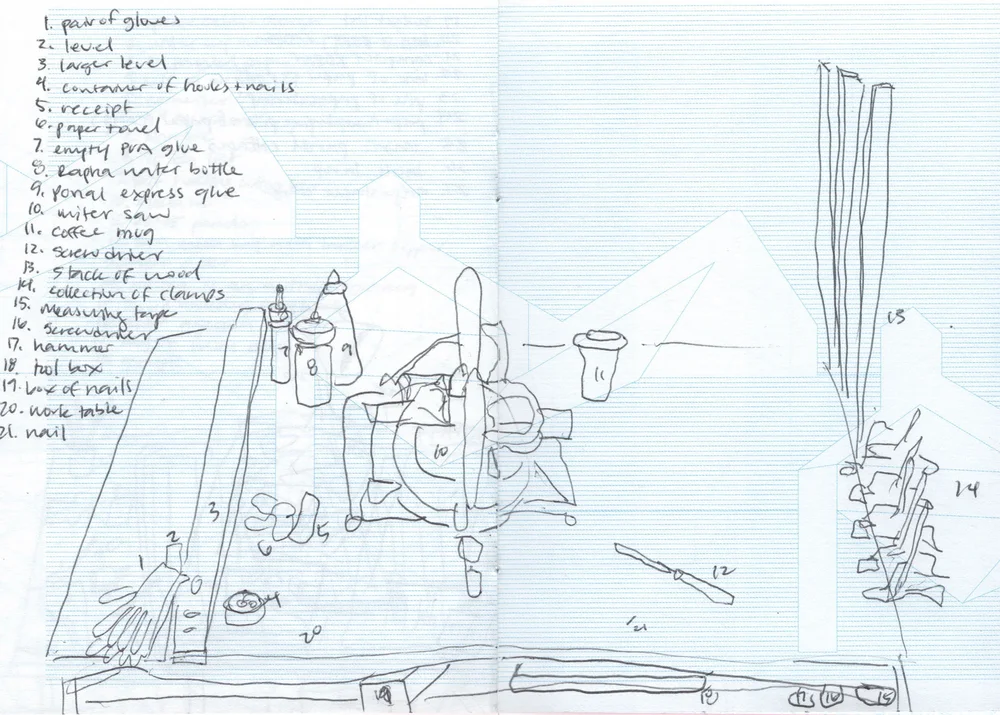 1. pair of gloves
2. level
3. larger level
4. container of hooks + nails
5. receipt
6. paper towel
7. empty PVA glue
8. Rapha water bottle
9. ponal express glue
10. miter saw
11. coffee mug
12. screwdriver
13. stack of wood
14. collection of clamps
15. measuring tape
16. screwdriver
17. hammer
18. tool box
19. box of nails
20. work table
21. nail
7
8
9
11
13
10
14
3
5
6
2
1
4
12
20
21
19
18
17
16
15